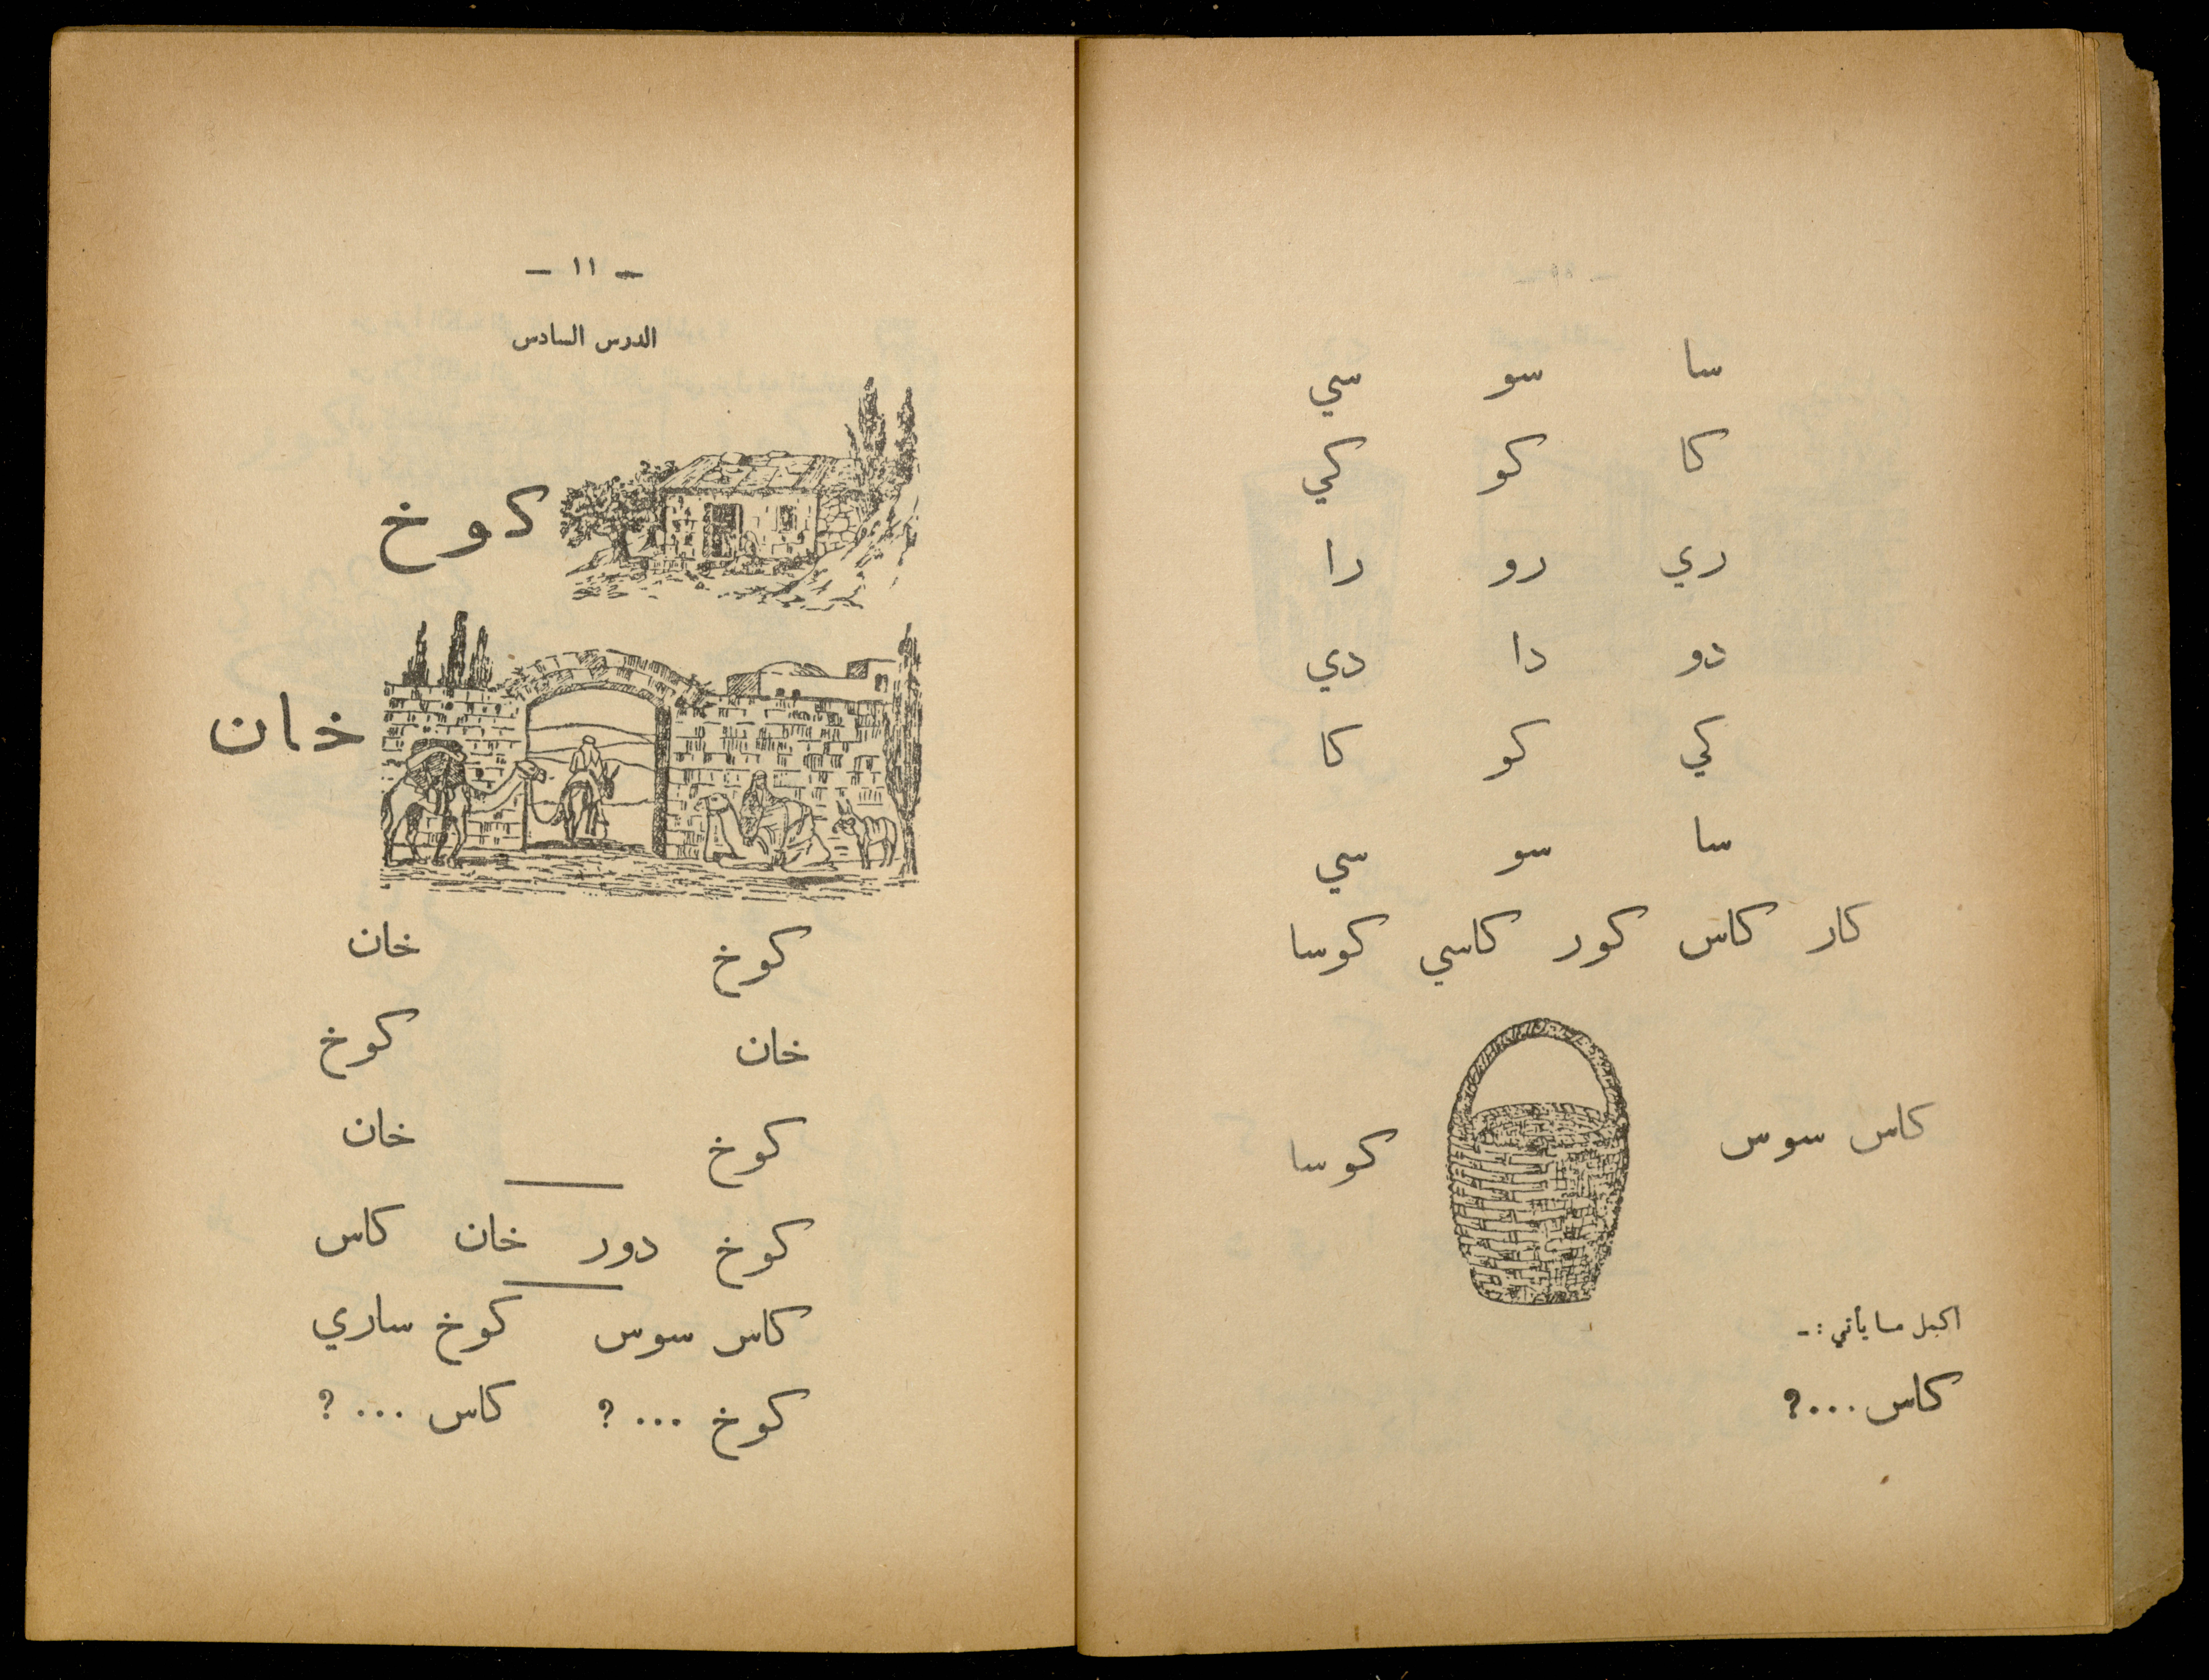 سا سو سي
كا كو كي
ري رو را
دو دا دي
كي كو كا
سا سو سي
كار كاس كور كاسي كوسا
كاس سوس كوسا
اكمل ما يأتي :-
كاس ...?
- ١١ -
الدرس السادس
كوخ
خان
كوخ خان
خان كوخ
كوخ خان
كوخ دور خان كاس
كاس سوس كوخ ساري
كوخ ...? كاس ...?